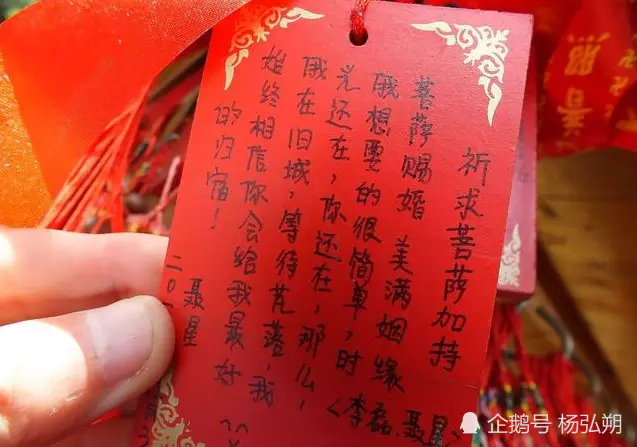 祈求菩萨加持
菩萨赐婚 美满姻缘
<李磊.聂星
俄想要的很简单,时
光还在,你还在,那么,
俄在旧城,等待花落,我
始终相信你会给我最好
的归宿!
聂星
二〇
普照
企鹅号 杨弘朔